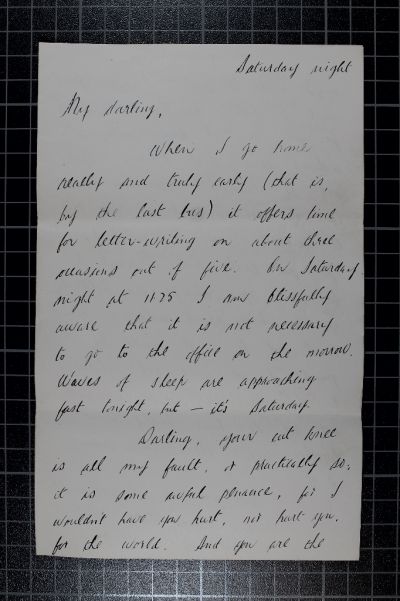 Saturday night
My darling,
When I go home
really and truly early (that is,
by the last bus) it offers time
for letter-writing on about three
occasions out of five. On Saturday
night at 11.25 I am blissfully
aware that it is not necessary
to go to the office on the morrow.
Waves of sleep are approaching
fast tonight, but — it's Saturday.
Darling, your cut knee
is all my fault, or practically so;
it is some awful penance, for I
wouldn't have you hurt, nor hurt you,
for the world. And you are the